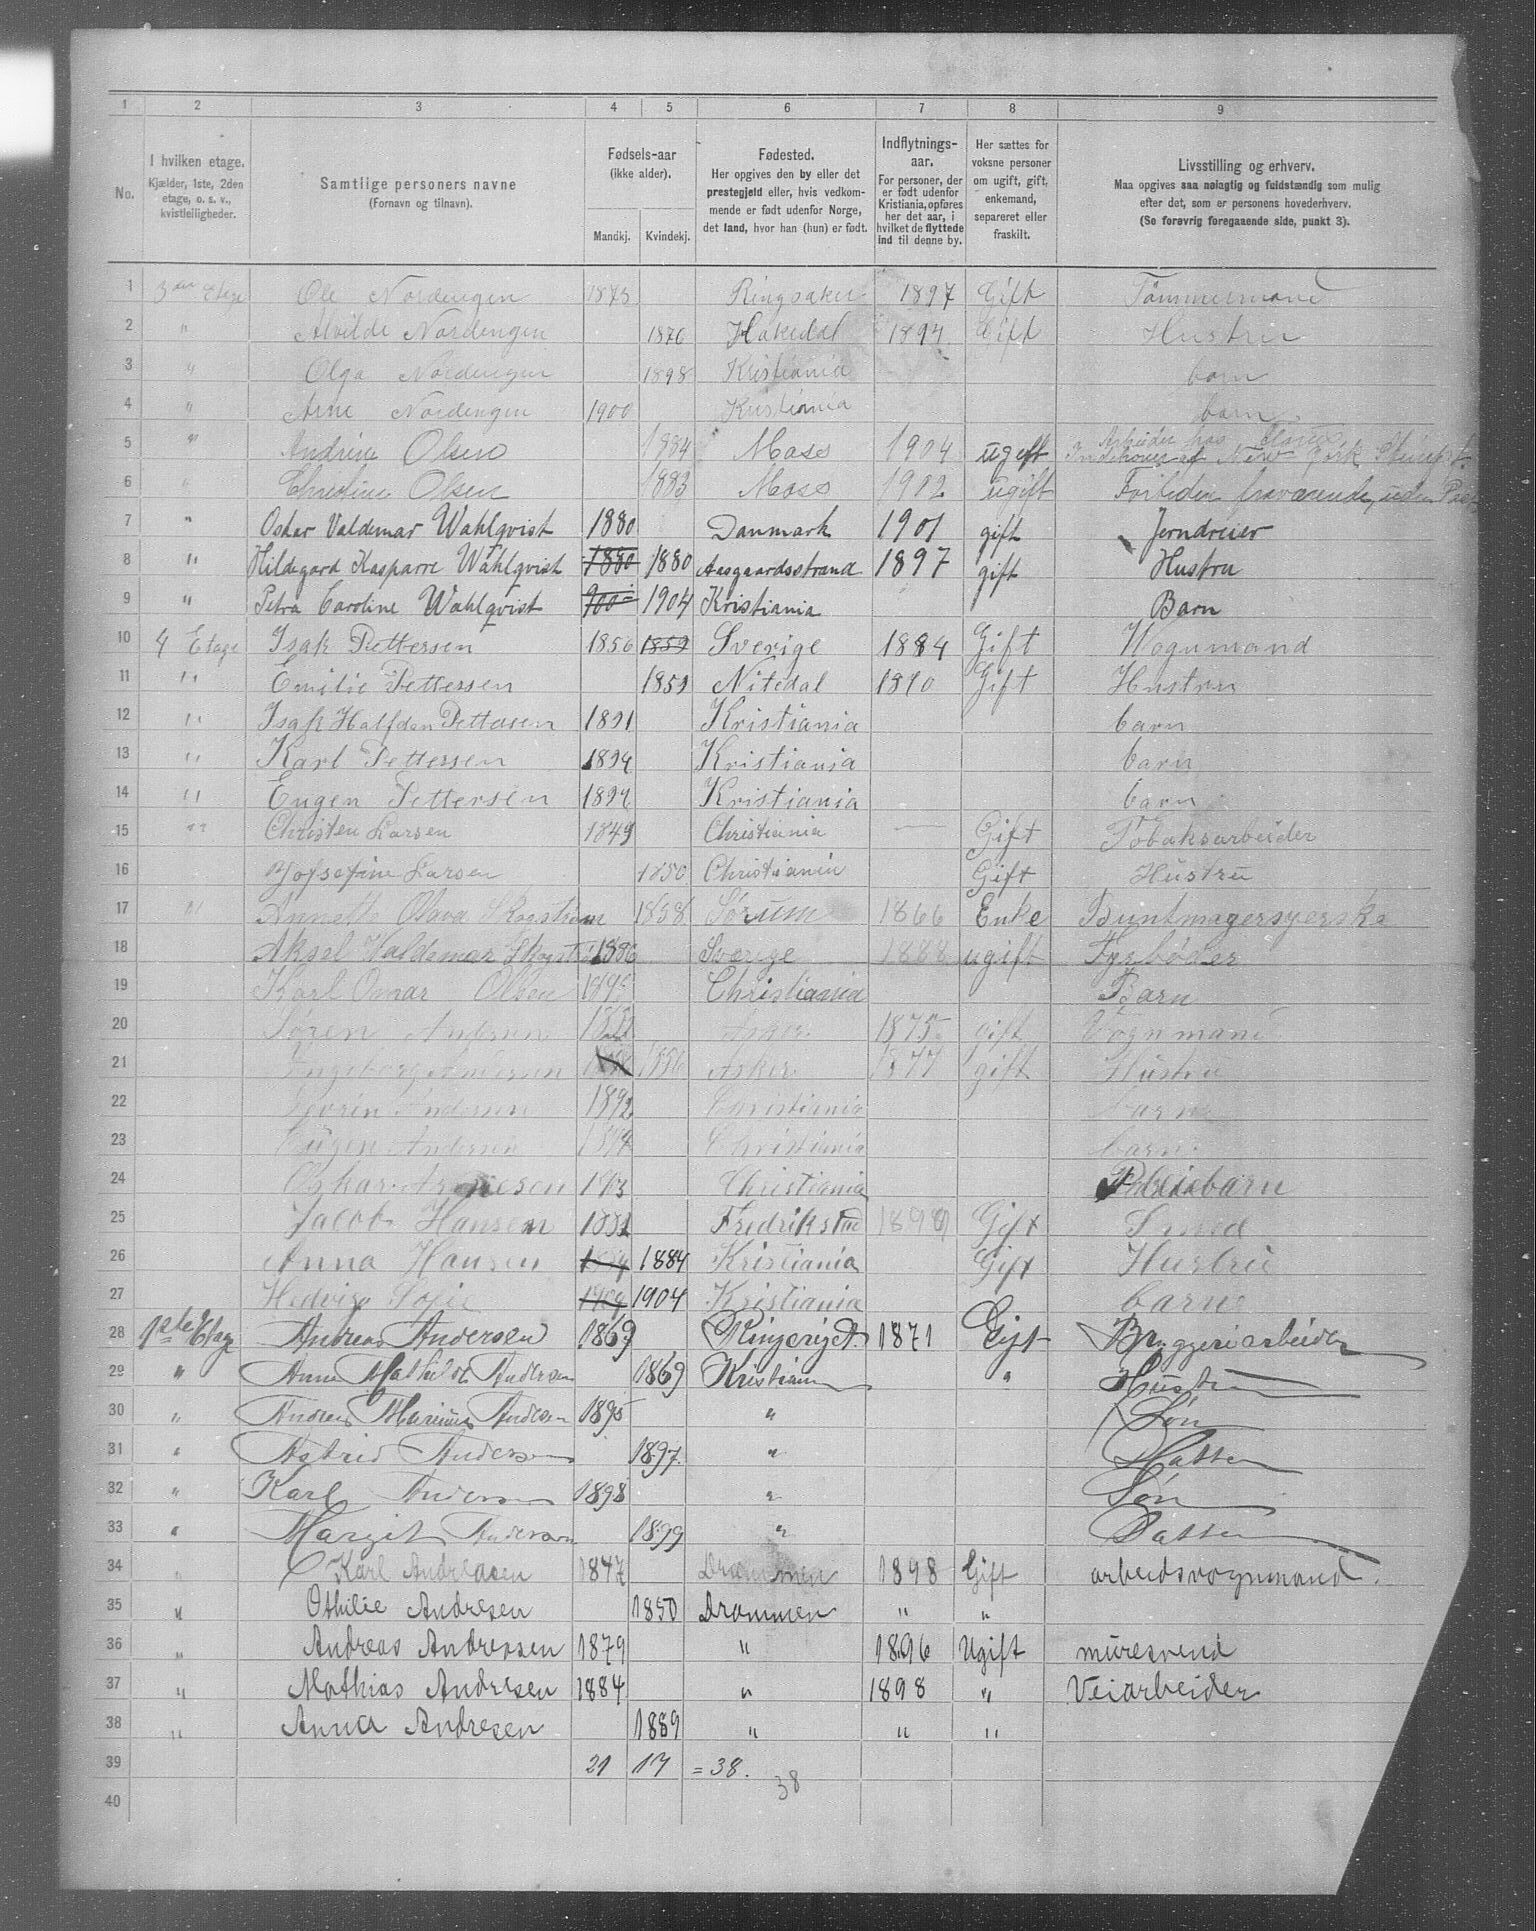 1 2 3 4 5 6 7 8 9
No.
I hvilken etage.
Kjælder, 1ste, 2den
etage, o. s. v.,
kvistleiligheder.
Samtlige personers navne
(Fornavn og tilnavn).
Fødsels-aar
(ikke alder).
Mandkj. Kvindekj.
Fødested.
Her opgives den by eller det
prestegjeld eller, hvis vedkom-
mende er født udenfor Norge,
det land, hvor han (hun) er født.
Indflytnings-
aar.
For personer, der
er født udenfor
Kristiania, opføres
her det aar, i
hvilket de flyttede
ind til denne by.
Her sættes for
voksne personer
om ugift, gift,
enkemand,
separeret eller
fraskilt.
Livsstilling og erhverv.
Maa opgives saa nøiagtig og fuldstændig som mulig
efter det, som er personens hovederhverv.
(Se forøvrig foregaaende side, punkt 3).
1 3die Etage Ole Nordengen 1873 Ringsaker 1897 Gift Tømmermand
2 " Alvilde Nordengen 1876 Hakedal 1894 Gift Hustru
3 " Olga Nordengen 1898 Kristiania barn
4 " Arne Nordengen 1900 Kristiania barn
5 " Andrine Olsen 1884 Moss 1904 ugift Arbeider hos New York
6 " Christine Olsen 1883 Moss 1902 ugift Fortiden fraværende, uden
7 " Oskar Valdemar Wahlqvist 1880 Danmark 1901 gift Jerndreier
8 " Hildegard Kasparre Wahlqvist 1880 1880 Aasgaardsstrand 1897 gift Hustru
9 " Petra Caroline Wahlqvist 1904 Kristiania Barn
10 4 Etage Isak Pettersen 1856 1859 Sverige 1884 Gift Vognmand
11 " Emilie Pettersen 1859 Nitedal 1890 Gift Hustru
12 " Isak Halfdan Pettersen 1891 Kristiania barn
13 " Karl Pettersen 1894 Kristiania barn
14 " Eugen Pettersen 1897 Kristiania barn
15 " Christen Larsen 1849 Christiania — Gift Tobaksarbeider
16 Josefine Larsen 1850 Christiania Gift Hustru
17 " Annette Olava Skogstrøm 1858 Sørum 1866 Enke Buntmagersyerske
18 Aksel Valdemar 1886 Sverige 1888 ugift Fyrbøder
19 Karl Omar Olsen 1895 Christiania Barn
20 Søren Andersen Asker 1875 gift Vognmand
21 Ingeborg Andersen 1856 Asker 1877 gift Hustru
22 Andersen 1892 Christiania barn
23 Eugen Andersen 1894 Christiania barn.
24 Oskar 1903 Christiania Pleiebarn
25 Jacob Hansen 1881 Fredrikstad 1899 Gift Smed
26 Anna Hansen 1884 Kristiania Gift Hustru
27 Hedvig Sofie 1904 1904 Kristiania barn
28 1ste Etage Andreas Andersen 1869 Ringeriget. 1871 Gift Bryggeriarbeider
29 " Anna Mathilde Andersen 1869 Kristiania " Hustru
30 " Andreas Marinius Andersen 1895 " Søn
31 " Astrid Andersen 1897. " Datter
32 " Karl Andersen 1898 " Søn
33 " Margit Andersen 1899 " Datter
34 " Karl Andreasen 1847 Drammen 1898 Gift arbeidsvognmand.
35 " Othilie Andresen 1850 Drammen " "
36 " Andreas Andreasen 1879 " 1896 Ugift muresvend
37 " Mathias Andresen 1884 " 1898 " Veiarbeider
38 " Anna Andresen 1889 " " "
39 21 17 = 38.
38
40